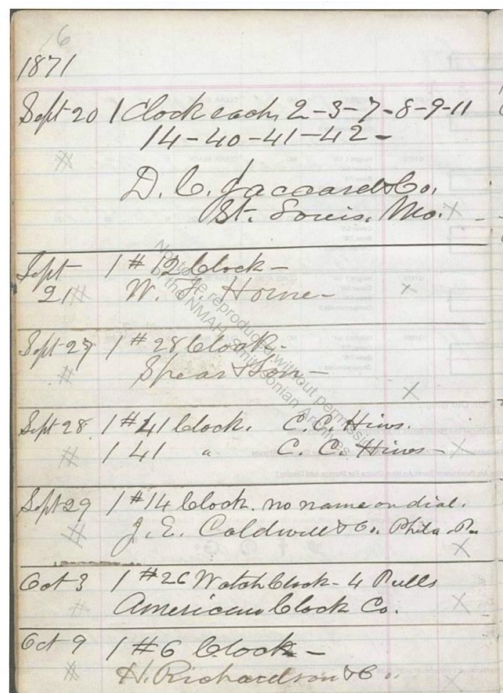 6
1871
Sept 20 1 Clock each 2-3-7-8-9-11
14-40-41-42-
D. C. Jaccard & Co.
St. Louis. Mo.
Sept 21 1 #12 Clock-
W. F. Horne-
Sept 27 1 #28 Clock-
Spear & Son-
Sept 28 1 #41 Clock. C. C. Hines.
1 41 " C. C. Hines-
Sept 29 1 #14 Clock. no name on dial.
J. E. Caldwell & Co. Phila. Pa
Oct 3 1 #26 Watch Clock-4 Pulls
American Clock Co.
Oct 9 1 #6 Clock-
H. Richardson & Co.
Not to be reproduced without permission
the NMAH, Smithsonian Archives